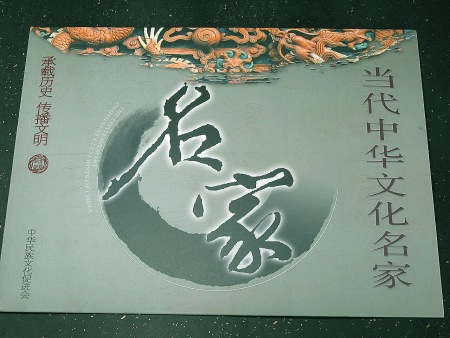 当代中华文化名家
名家
承载历史 传播文明
中华民族文化促进会